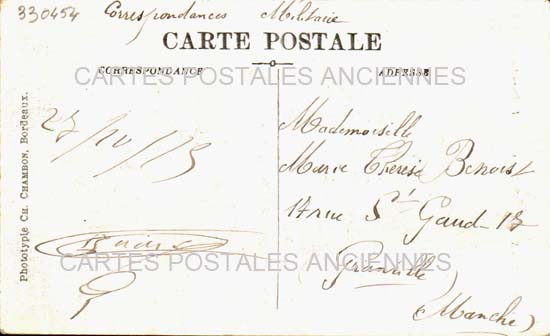 330454 Correspondances Militaire
CARTE POSTALE
CORRESPONDANCE ADRESSE
CARTES POSTALES ANCIENNES
27/10/15
Mademoiselle
Marie Thérèse Benoist
17 rue St Gaud - 17
Granville
(Manche)
CARTES POSTALES ANCIENNES
Phototypie CH. CHAMBON, Bordeaux.